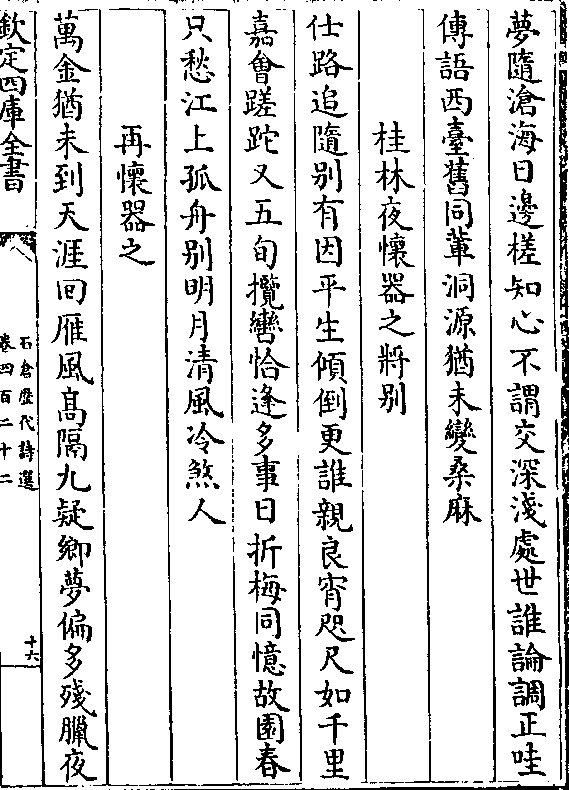 夢隨滄海日邊槎知心不謂交深淺處世誰論調正哇
傳語西臺舊同輩洞源猶未變桑麻
桂林夜懷器之將别
仕路追隨别有因平生傾倒更誰親良宵咫尺如千里
嘉會蹉跎又五旬攬轡恰逢多事日折梅同憶故園春
只愁江上孤舟别明月清風冷煞人
再懷器之
萬金猶未到天涯回雁風髙隔九疑鄉夢偏多殘臘夜
欽定四庫全書
石倉歷代詩選
卷四百二十二
十六